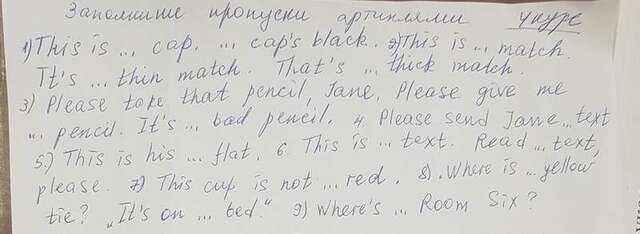 Заполните пропуски артиклями 4 курс
1) This is ... cap. ... cap's black. 2) This is ... match.
It's ... thin match. That's ... thick match.
3) Please take that pencil, Jane, Please give me
... pencil. It's ... bad pencil. 4. Please send Jane ... text
5.) This is his ... flat. 6. This is ... text. Read ... text,
please. 7) This cup is not ... red. 8). Where is ... yellow
tie? „It's on ... bed." 9) Where's ... Room Six?